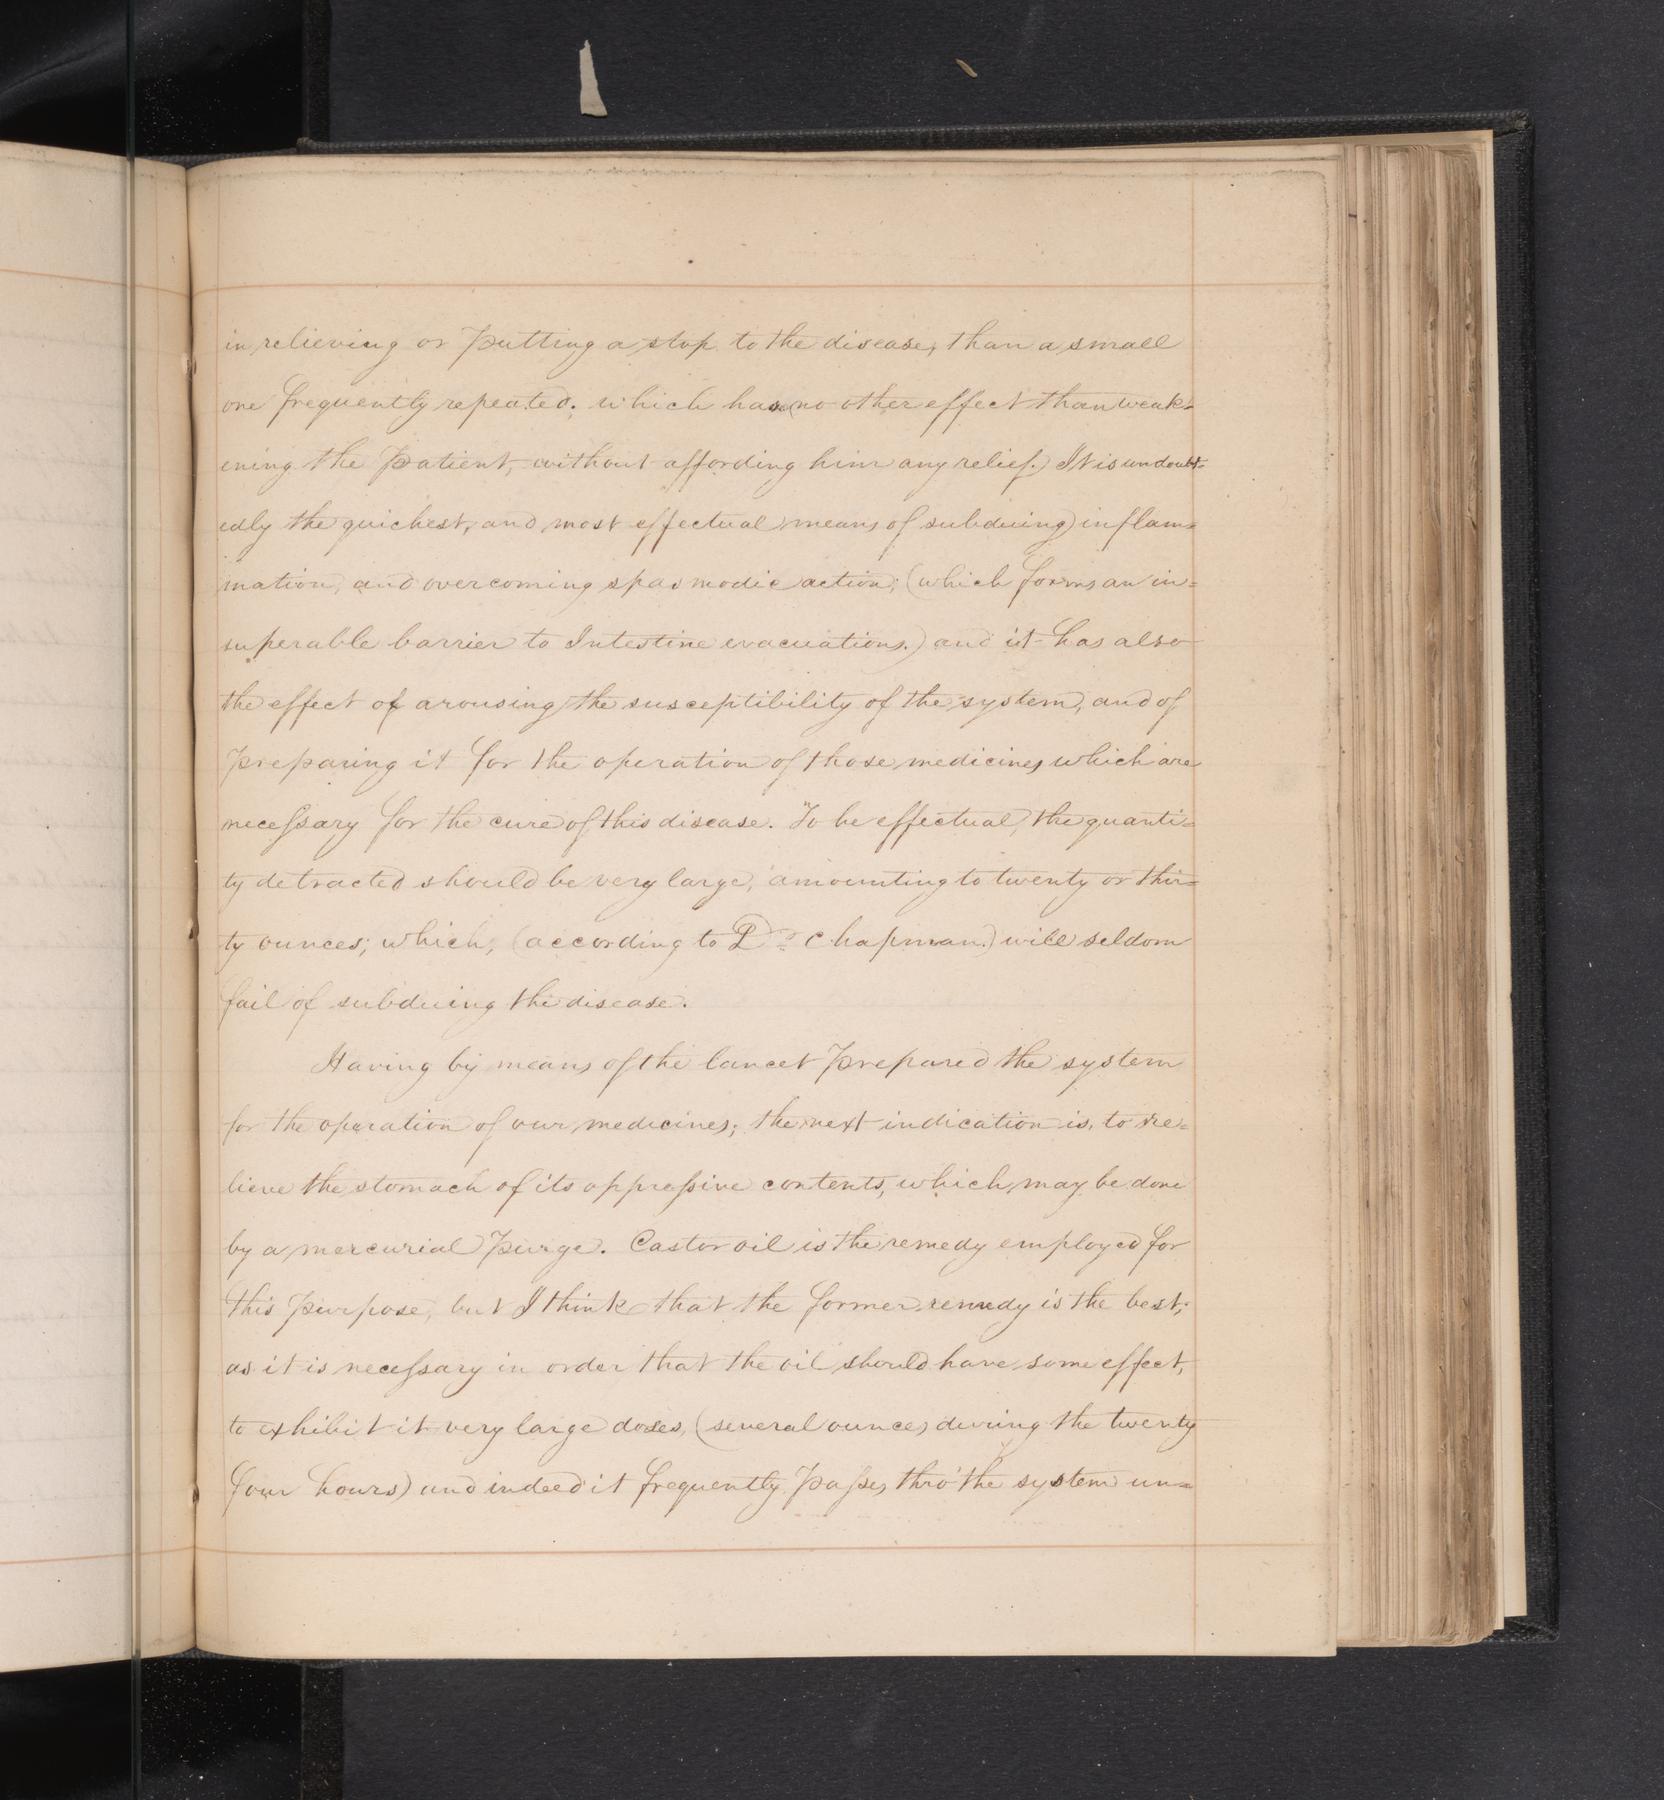 in relieving or putting a stop to the disease, than a small
one frequently repeated; which has (no other effect than weak=
ening the Patient, without affording him any relief.) It is undoubt=
edly the quickest, and most effectual means of subduing inflam=
mation, and overcoming spasmodic action; (which forms an in=
superable barrier to Intestine evacuations.) and it has also
the effect of arousing the susceptibility of the system, and of
preparing it for the operation of those medicines which are
necessary for the cure of this disease. To be effectual, the quanti=
ty detracted should be very large, amounting to twenty or thir=
ty ounces; which, (according to Dr. Chapman.) will seldom
fail of subduing the disease.
Having by means of the lancet prepared the system
for the operation of our medicines; the next indication is, to re=
lieve the stomach of its oppressive contents, which may be done
by a mercurial purge. Castor oil is the remedy employed for
this purpose, but I think that the former remedy is the best;
as it is necessary in order that the oil should have some effect,
to exhibit it very large doses, (several ounces during the twenty
four hours) and indeed it frequently passes thro' the system un=